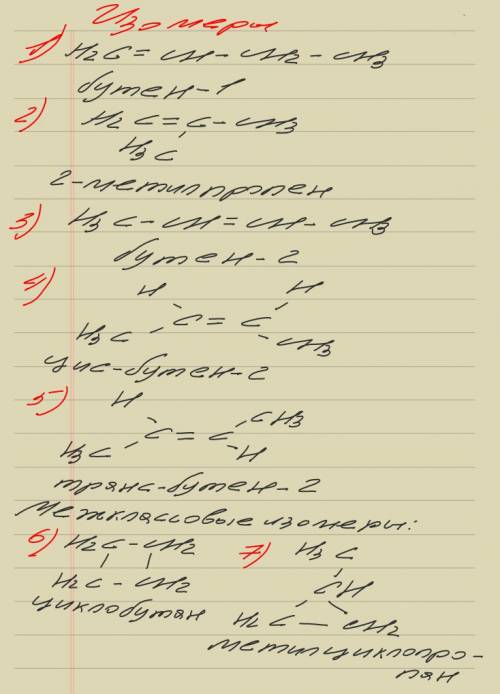 Изомеры
1) H2C = CH - CH2 - CH3
бутен-1
2) H2C = C - CH3
H3C
2-метилпропен
3) H3C - CH = CH - CH3
бутен-2
4) H H
C = C
H3C CH3
цис-бутен-2
5) H CH3
C = C
H3C H
транс-бутен-2
Межклассовые изомеры:
6) H2C - CH2
H2C - CH2
циклобутан
7) H3C
CH
H2C — CH2
метилциклопро-
пан